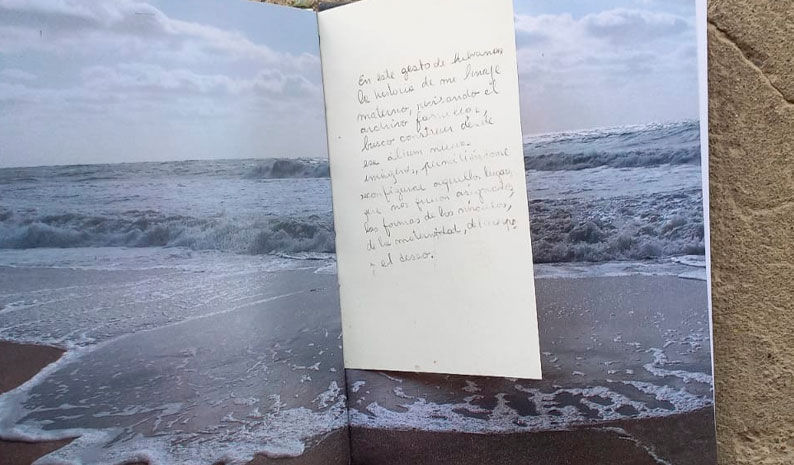 En este gesto de hilvanar
la historia de mi linaje
materno, revisando el
archivo familiar
busco construir desde
ese album nuevas
imágenes, permitiéndome
reconfigurar aquellos lugares
que nos fueron asignados,
las formas de los vínculos,
de la maternidad, del cuerpo
y el deseo.